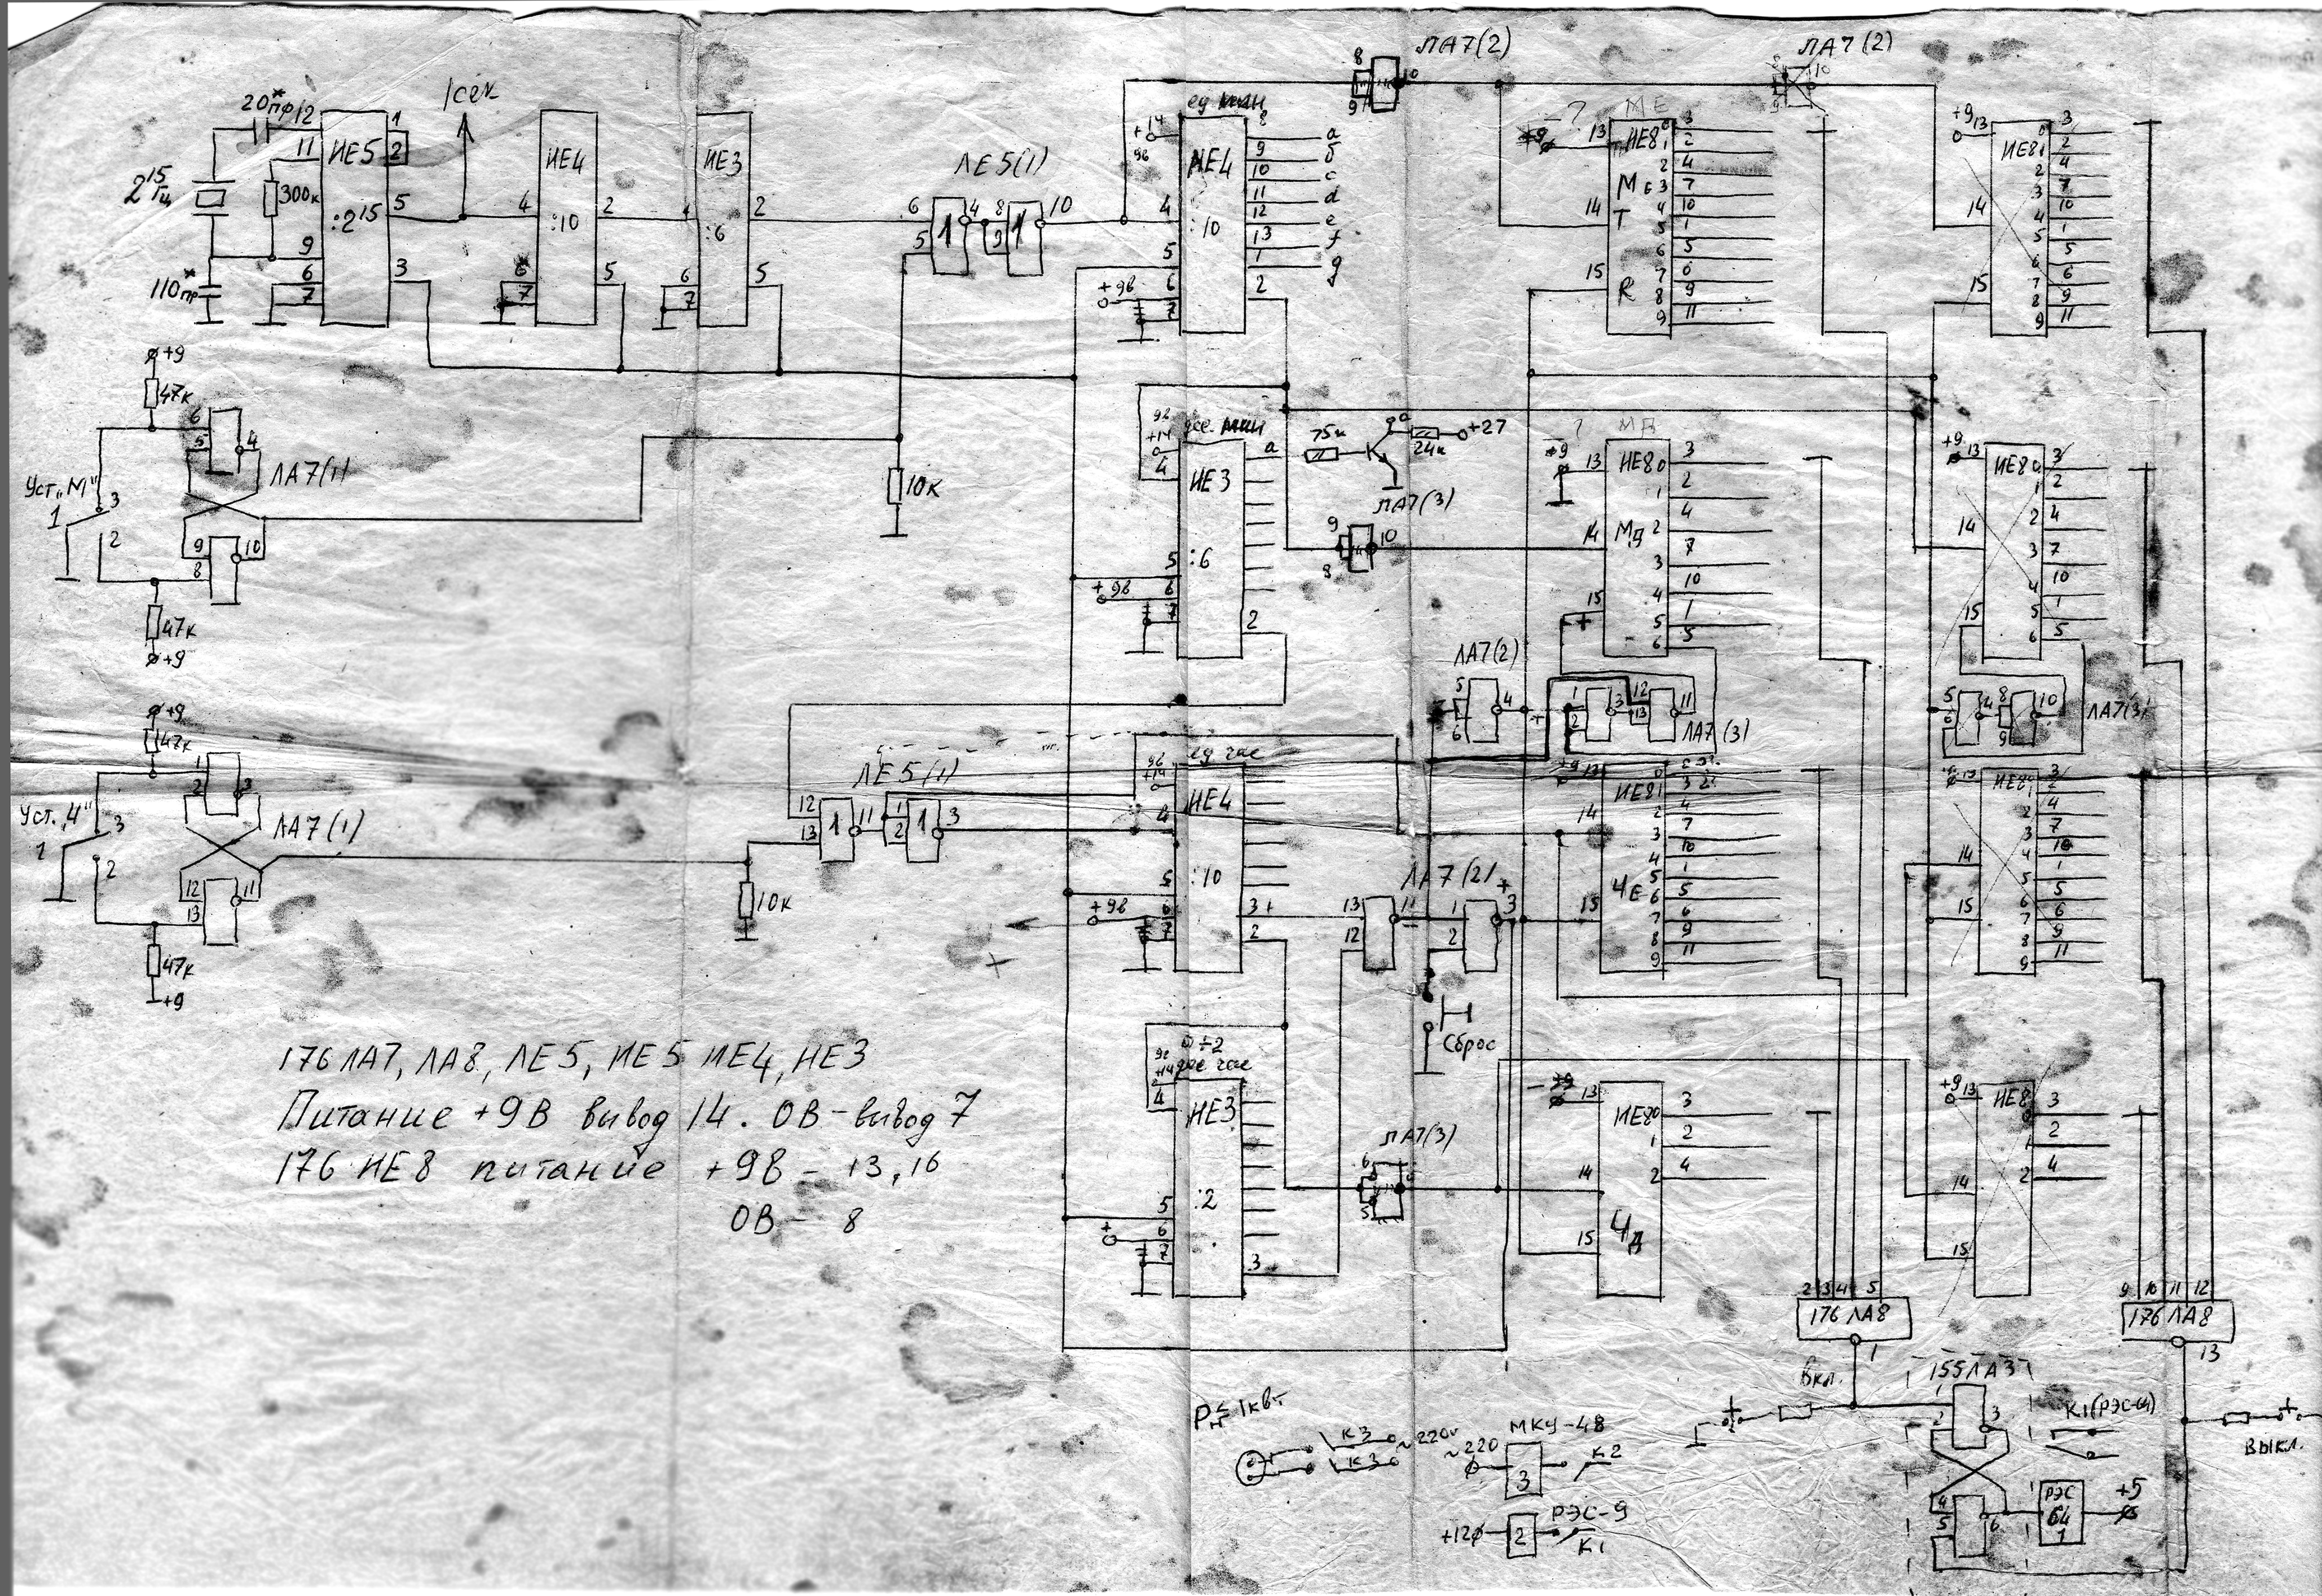 ЛА7(2)
ЛА7(2)
1сек
20пф*
ИЕ5
:2¹⁵
2¹⁵ Гц
300к
110пф*
ИЕ4
:10
ИЕ3
:6
ЛЕ5(1)
ед мин
+14
9в
ИЕ4
:10
+9в
a
б
c
d
e
f
g
МЕ
ИЕ8
Т
R
+9
ИЕ8
+9
47к
Уст. „М"
ЛА7(1)
47к
+9
10к
дес. мин
ИЕ3
:6
+9в
75к
24к
+27
ЛА7(3)
МД
+9
ИЕ8
Мд
+9
ИЕ8
ЛА7(2)
ЛА7(3)
ЛА7(3)
+9
47к
Уст. „Ч"
ЛА7(1)
47к
+9
10к
ЛЕ5(1)
ед час
ИЕ4
:10
+9в
ЛА7(2)
+9
ИЕ8
ЧЕ
+9
ИЕ8
Сброс
÷2
дес час
ИЕ3
:2
ЛА7(3)
ИЕ8
Чд
+9
ИЕ8
176 ЛА7, ЛА8, ЛЕ5, ИЕ5 ИЕ4, ИЕ3
Питание +9В вывод 14. 0В - вывод 7
176 ИЕ8 питание +9В - 13,16
0В - 8
2 3 4 5
176 ЛА8
1
9 10 11 12
176 ЛА8
13
Вкл.
155ЛА3
К1(РЭС-64)
Выкл.
Рн ≤ 1квт
К3
К3
~220v
МКУ-48
~220
3
К2
РЭС-9
+12
2
К1
РЭС
64
1
+5